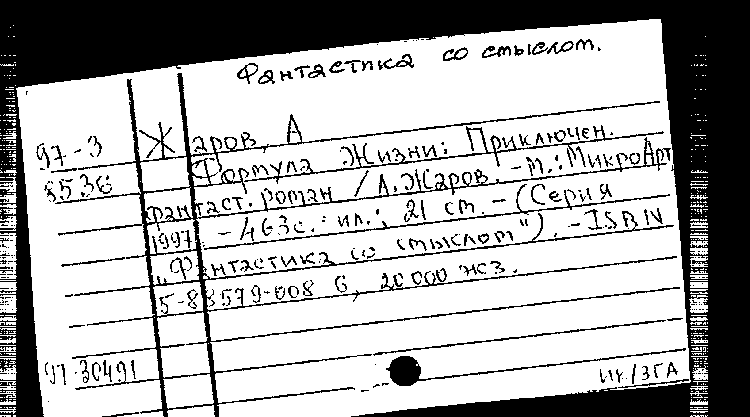 Фантастика со смыслом.
97-3 Жаров, А
8536 Формула Жизни: Приключен.
фантаст. роман / А. Жаров. - М.: МикроАрт,
1997. - 463 с.: ил.; 21 см. - (Серия
"Фантастика со смыслом"). - ISBN
5-88579-008 6, 20000 экз.
97-30491